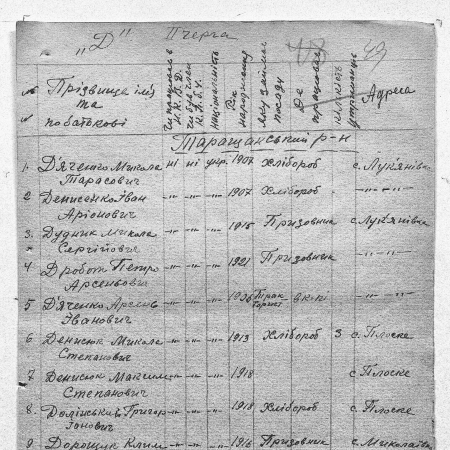 „Д" ІІ черга
49
Прізвище ім'я та по батькові
національність
Рік народження
посаду
Де працював
кількість
Адреса
Таращанський р-н
1. Д'яченко Микола Тарасович ні ні укр. 1907 Хлібороб с. Лук'янівка
2 Денисенко Іван Аріонович -"- -"- -"- 1907 Хлібороб -"-
3. Дудник Микола Сергійович -"- -"- -"- 1915 Призовник с. Лук'янівка
4 Дробот Петро Арсеньович -"- -"- -"- 1921 Призовник -"-
5 Д'яченко Арсень Іванович -"- -"- -"- 1906 -"-
6 Денисюк Микола Степанович -"- -"- -"- 1913 Хлібороб 3 с. Плоске
7 Денисюк Максим Степанович -"- -"- -"- 1918 с Плоске
8. Григор Іонович -"- -"- -"- 1918 Хлібороб с. Плоске
9 Дорощук Клим -"- -"- -"- 1916 Призовник с. Миколаївка